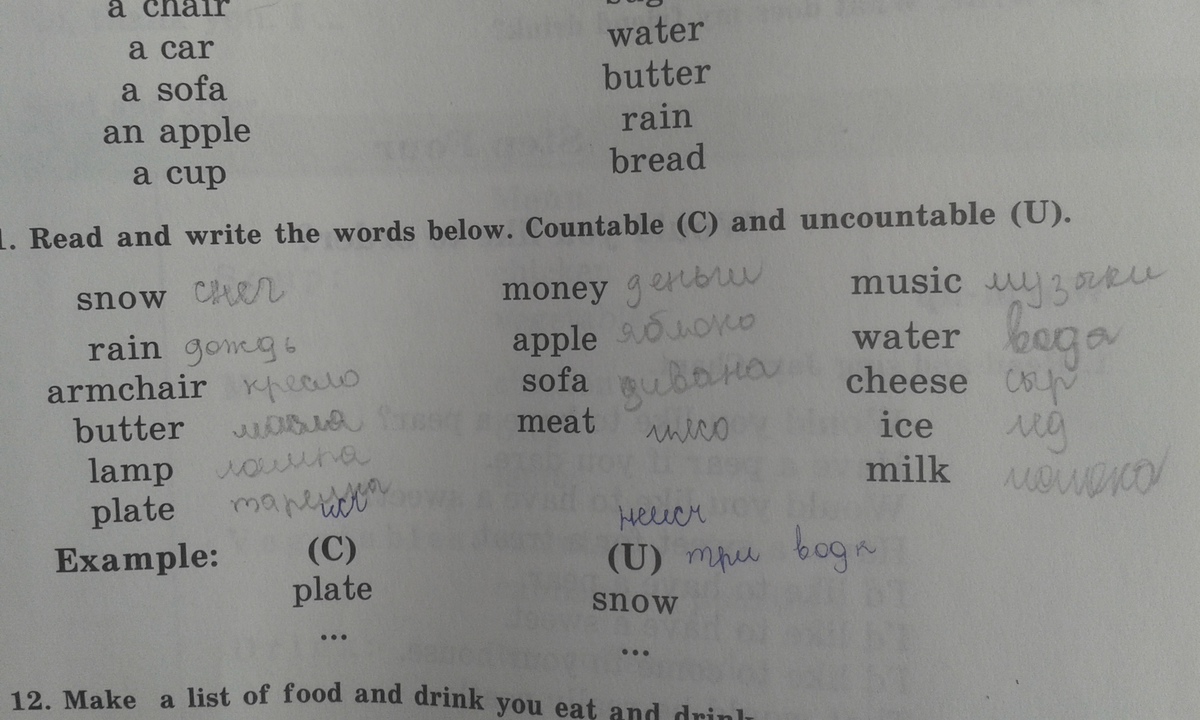 a chair
a car
a sofa
an apple
a cup
water
butter
rain
bread
1. Read and write the words below. Countable (C) and uncountable (U).
snow снег money деньги music музыки
rain дождь apple яблоко water вода
armchair кресло sofa дивана cheese сыр
butter масла meat мясо ice лед
lamp лампа milk молоко
plate тарелка
исч неисч
Example: (C) (U) три вода
plate snow
... ...
12. Make a list of food and drink you eat and drink